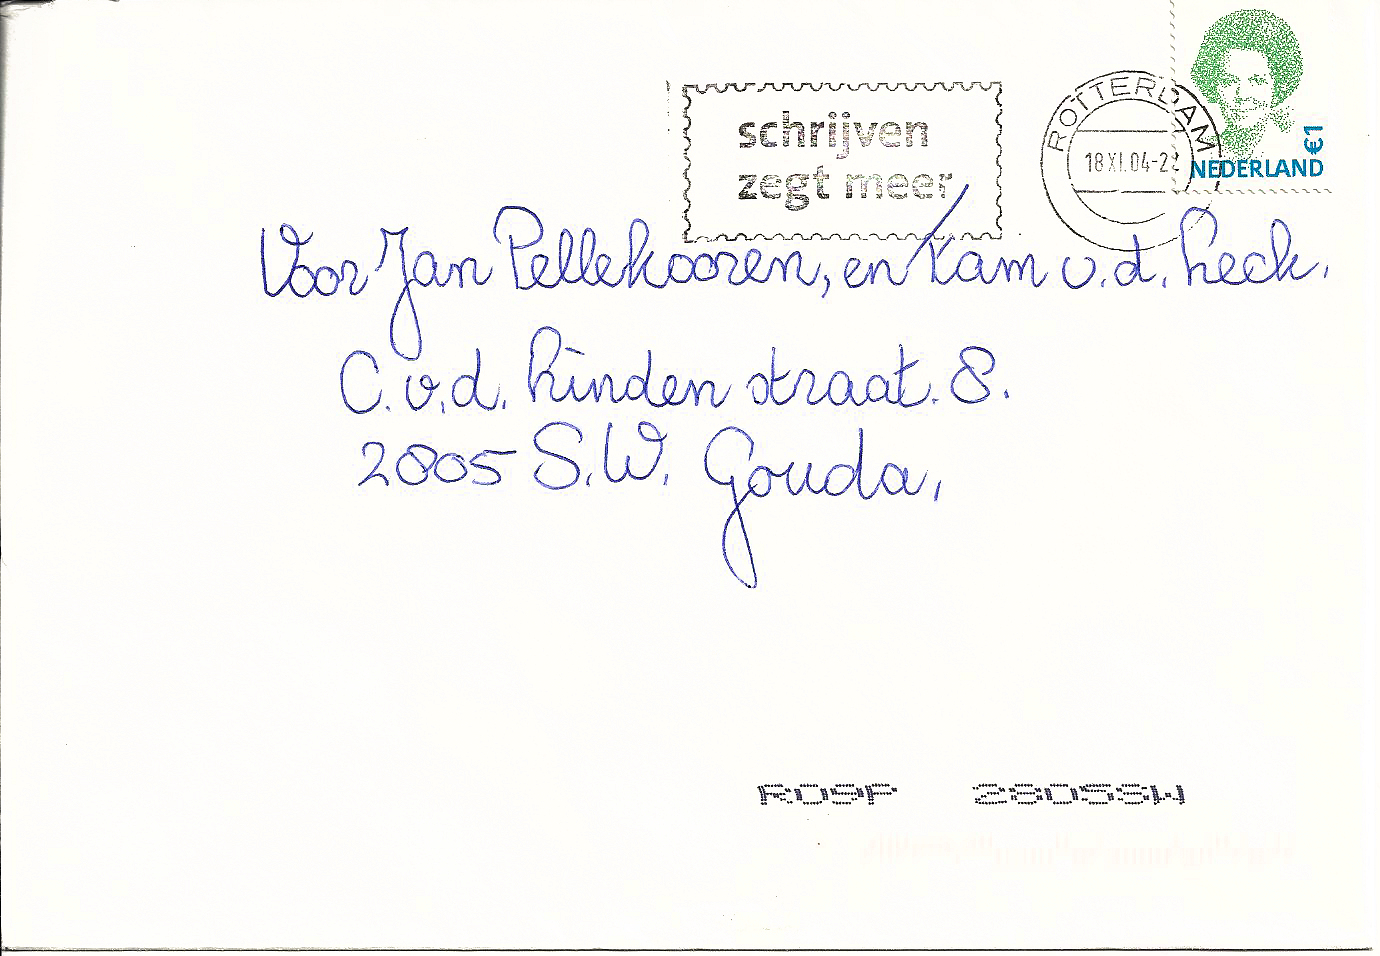 schrijven
zegt meer
ROTTERDAM
18 XI.04-22
€1
NEDERLAND
Voor Jan Pellekooren, en Kam v.d. Heck.
C. v.d. Linden straat. 8.
2805 S.W. Gouda,
R09P 2805SW